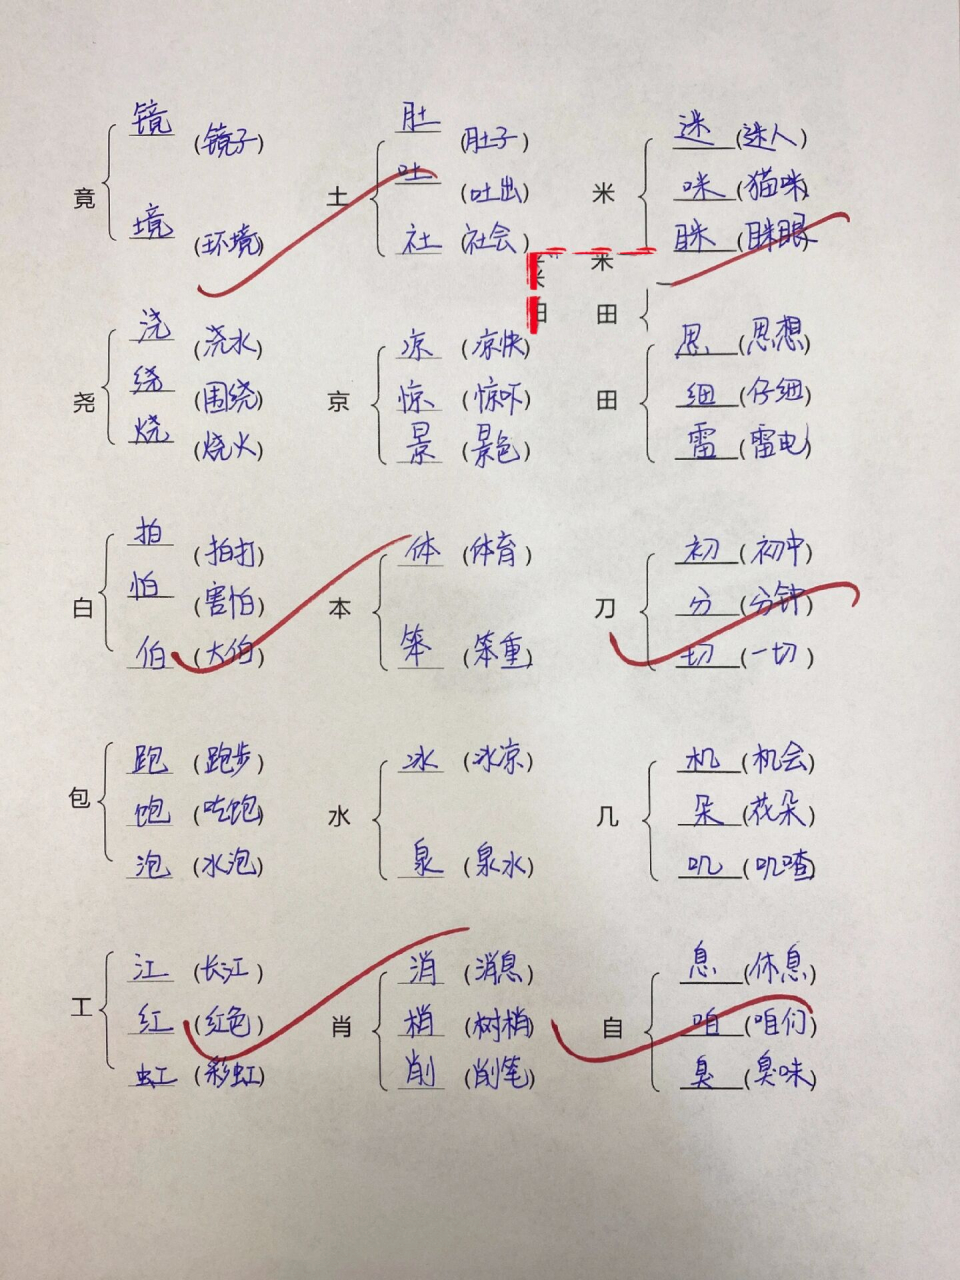 镜 (镜子) 肚 (肚子) 迷 (迷人)
竟 土 吐 (吐出) 米 咪 (猫咪)
境 (环境) 社 (社会) 眯 (眯眼)
米
田
浇 (浇水) 凉 (凉快) 思 (思想)
尧 绕 (围绕) 京 惊 (惊吓) 田 细 (仔细)
烧 (烧火) 景 (景色) 雷 (雷电)
拍 (拍打) 体 (体育) 初 (初中)
白 怕 (害怕) 本 刀 分 (分钟)
伯 (大伯) 笨 (笨重) 切 (一切)
跑 (跑步) 冰 (冰凉) 机 (机会)
包 饱 (吃饱) 水 几 朵 (花朵)
泡 (水泡) 泉 (泉水) 叽 (叽喳)
江 (长江) 消 (消息) 息 (休息)
工 红 (红色) 肖 梢 (树梢) 自 咱 (咱们)
虹 (彩虹) 削 (削笔) 臭 (臭味)